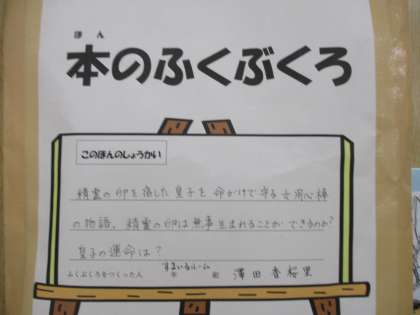 ほん
本のふくぶくろ
このほんのしょうかい
精霊の卵を宿した皇子を命がけで守る女用心棒
の物語。精霊の卵は無事生まれることができるのか?
皇子の運命は?
すまいるルーム
ふくぶくろをつくった人 年 組 澤田香桜里